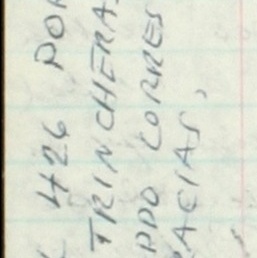 426 POR
TRINCHERAS
PDO CORRES
RACIAS,